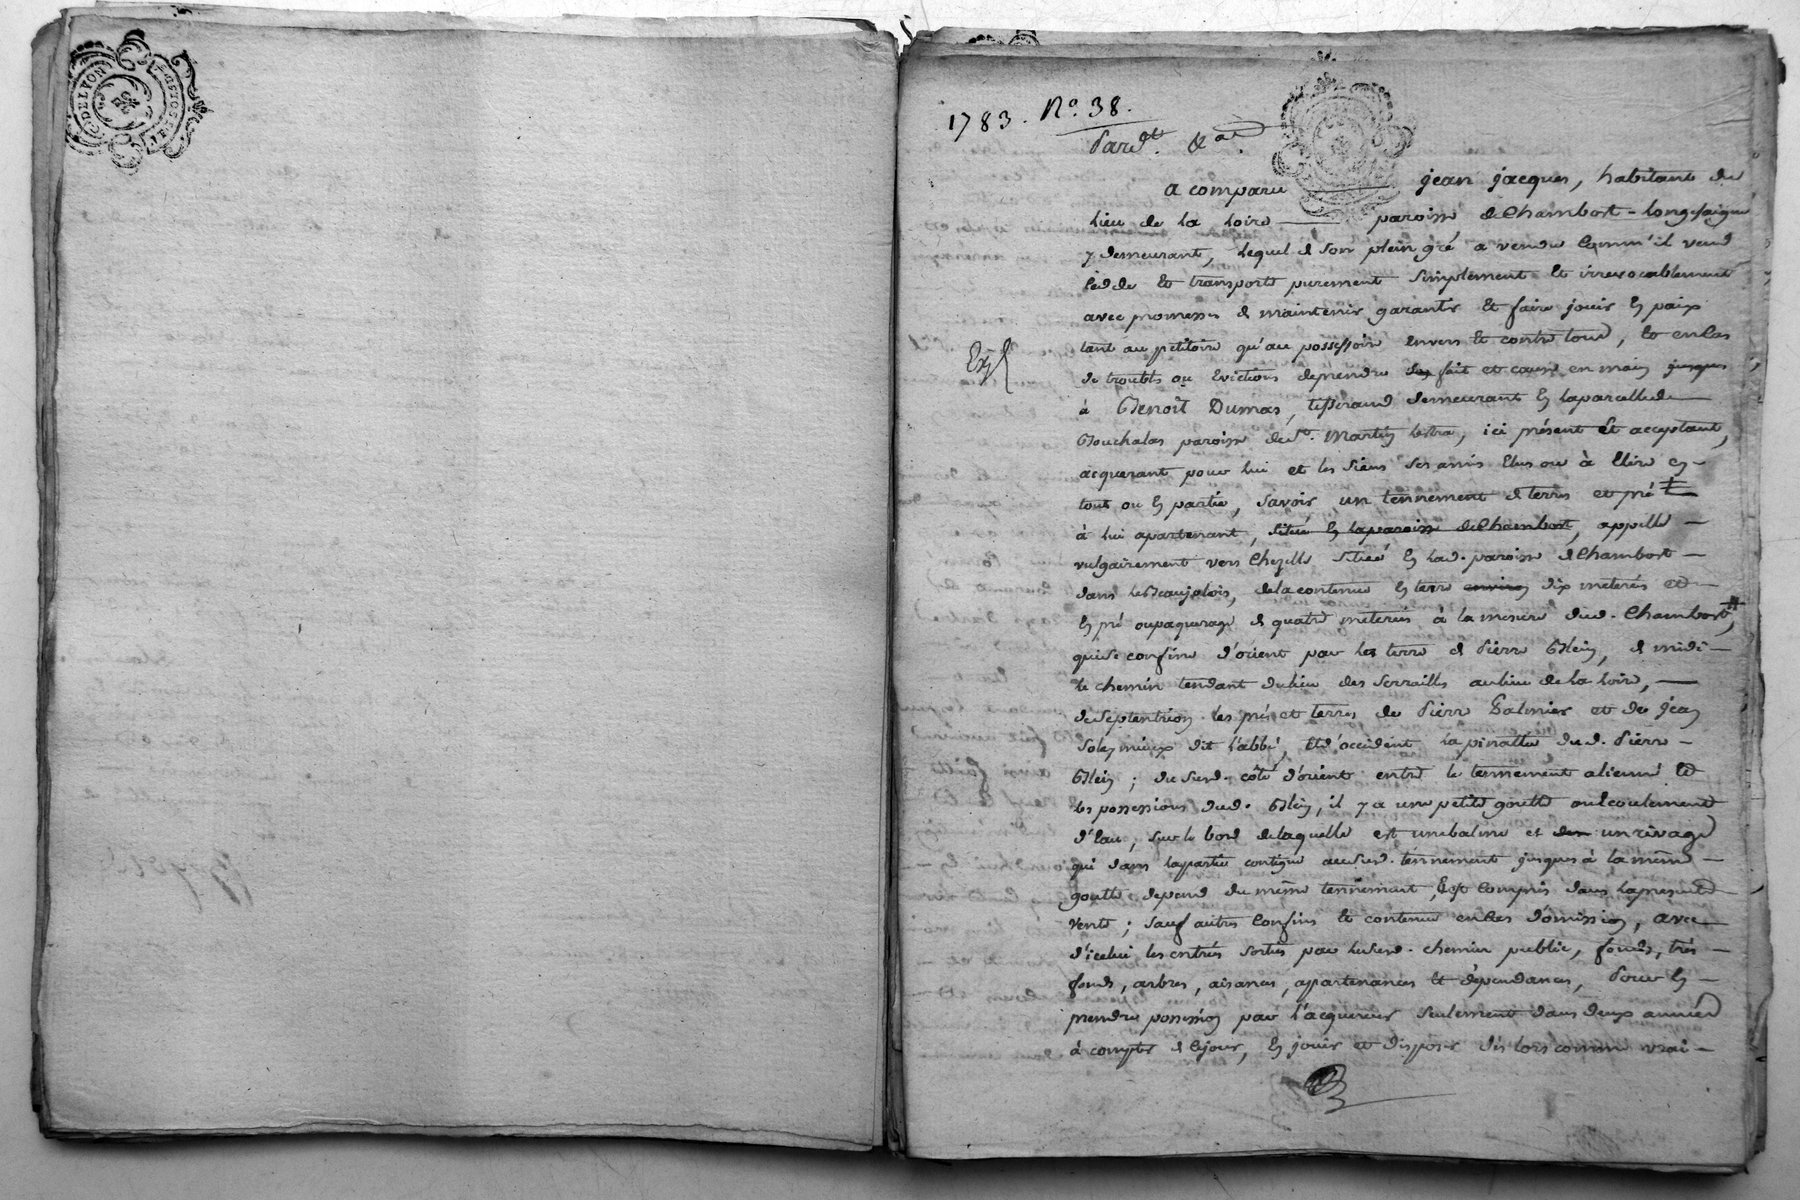 G. DE LYON
1783. No. 38.
Pard.t &a.
a comparu jean jacques, habitant du
lieu de la Loire paroisse de Chambost-Longesaigne
y demeurant, lequel de son plein gré a vendu comm'il vend
cedde et transporte purement simplement et irrevocablement
avec promesses de maintenir garantir et faire jouir en paix
tant au petitoire qu'au possessoire envers et contre tous, et en cas
de troubles ou evictions deprendre fait et cause en main jusques
Exp
à Benoît Dumas, tisserand demeurant en la parcelle de
Bouchalas paroisse de St. Martin Lestra, ici présent et acceptant,
acquerant pour lui et les siens ses amis elus ou à elire en
tout ou en partie, savoir un tennement de terres et pré
à lui apartenant, situé en la paroisse de Chambost, appellé
vulgairement vers Chezelle situé en lad. paroisse de Chambost
dans le Beaujolois, de la contenue en terre environ dix meterés et
en pré ou paquerage de quatre meterés à la mesure dud. Chambost,
qui se confine d'orient par les terre de Pierre Blein, de midi
le chemin tendant du lieu des Serrailles au lieu de la Loire,
de septentrion les prés et terres de Pierre Palmier et de jean
Soleymieux dit l'abbé, et d'occident la pinatte dud. Pierre
Blein; du susd. côté d'orient entre le tennement aliené et
les possessions dud. Blein, il y a une petite goutte ou ecoulement
d'eau, sur le bord de laquelle est une balme et un rivage
qui dans la partie contigue au susd. tennement jusques à la même
goutte depend du même tennement, et est compris dans la presente
vente; sauf autres confins et contenue en cas d'omission, avec
d'icelui les entrées sorties par le susd. chemin public, fonds, tres-
fonds, arbres, aisances, appartenances et dependances, Pour en
prendre possession par l'acquereur seulement dans deux années
à compter de ce jour, en jouir et disposer dès lors comme vrai-